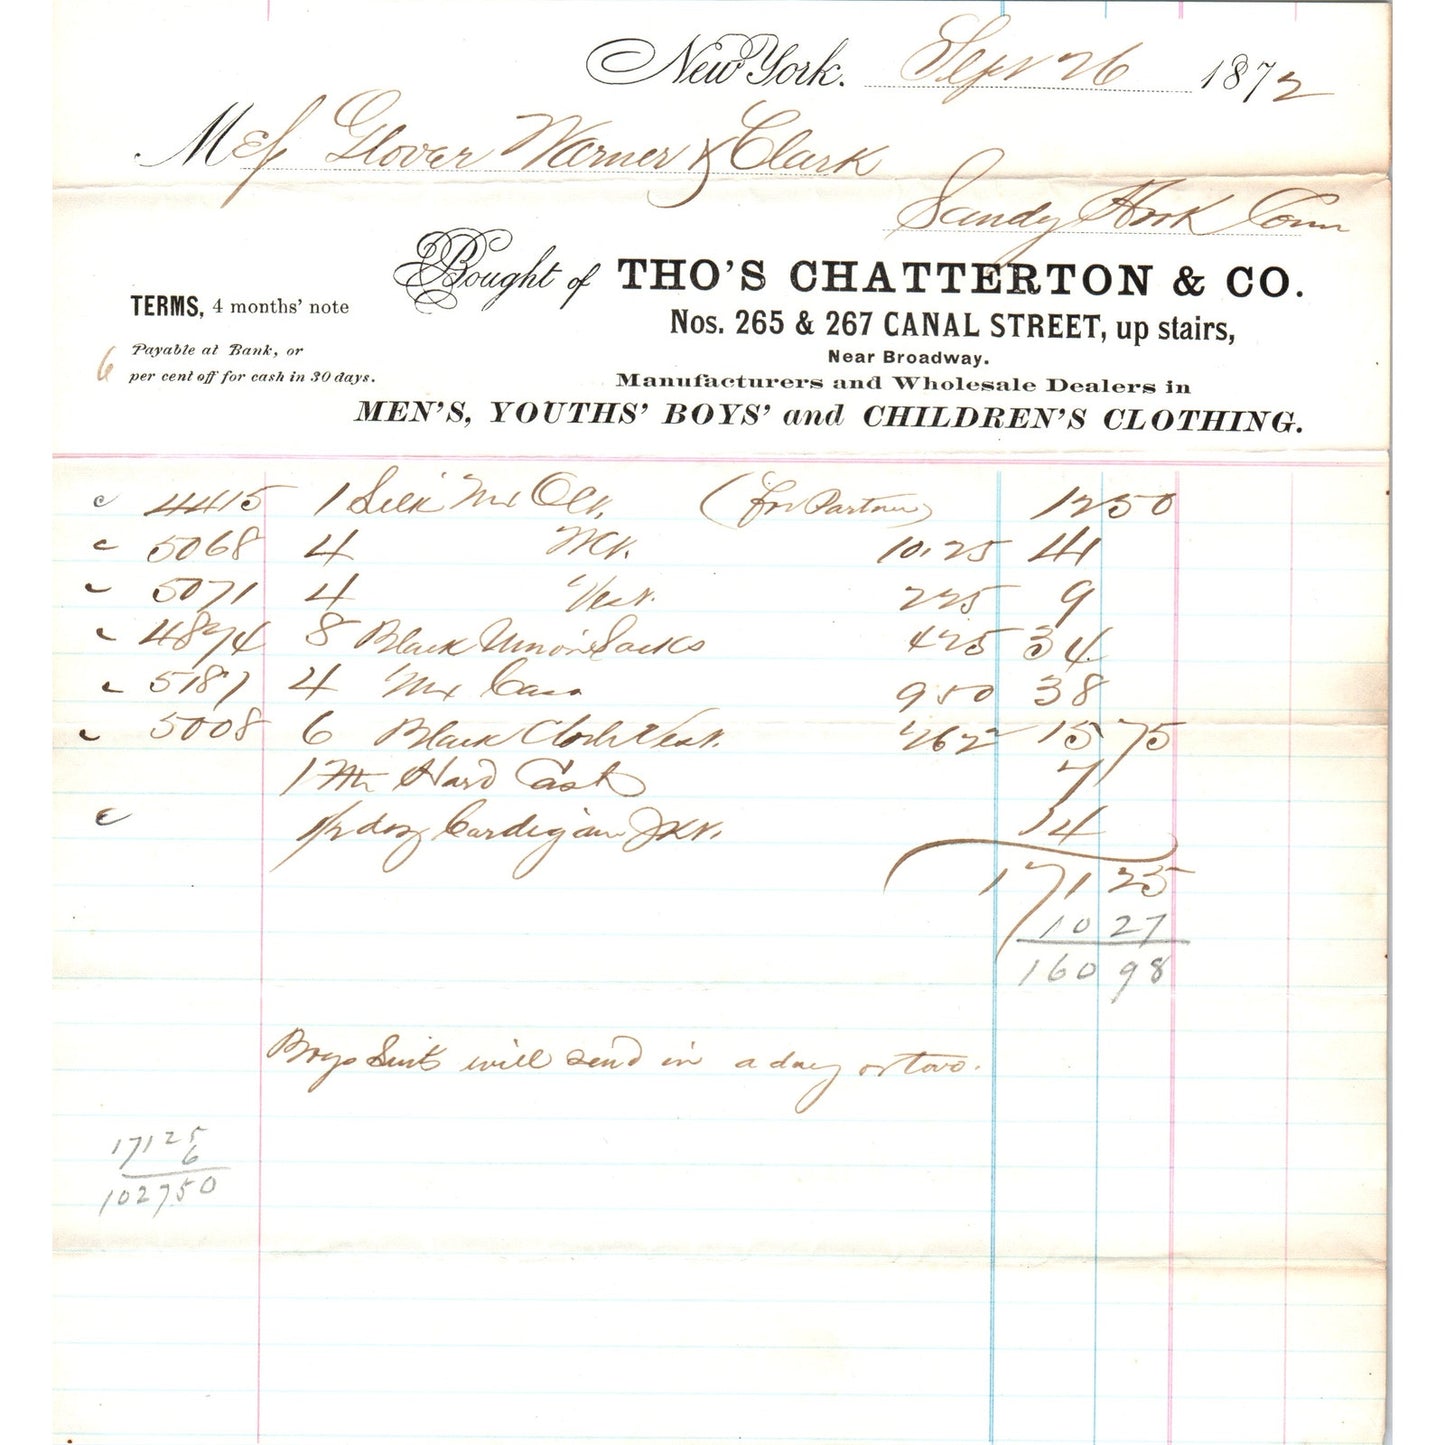 New York. Sept 26 1872
Mess Glover Warner & Clark
Sandy Hook Conn
Bought of THO'S CHATTERTON & CO.
TERMS, 4 months' note
Nos. 265 & 267 CANAL STREET, up stairs,
Payable at Bank, or
Near Broadway.
6 per cent off for cash in 30 days.
Manufacturers and Wholesale Dealers in
MEN'S, YOUTHS' BOYS' and CHILDREN'S CLOTHING.
c 4415 1 Silk Mx (for Partner) 12 50
c 5068 4 10.25 41
c 5071 4 Vest. 2 25 9
c 4874 8 Black Union Sacks 4 25 34
c 5187 4 Mx Cass 9 50 38
c 5008 6 Black Cloth Vest. 2 62 15 75
1 Hard Cash 7
c 1/2 doz Cardigan Jkt. 14
171 25
10 27
160 98
Boys Suits will send in a day or two.
171 25
6
102750